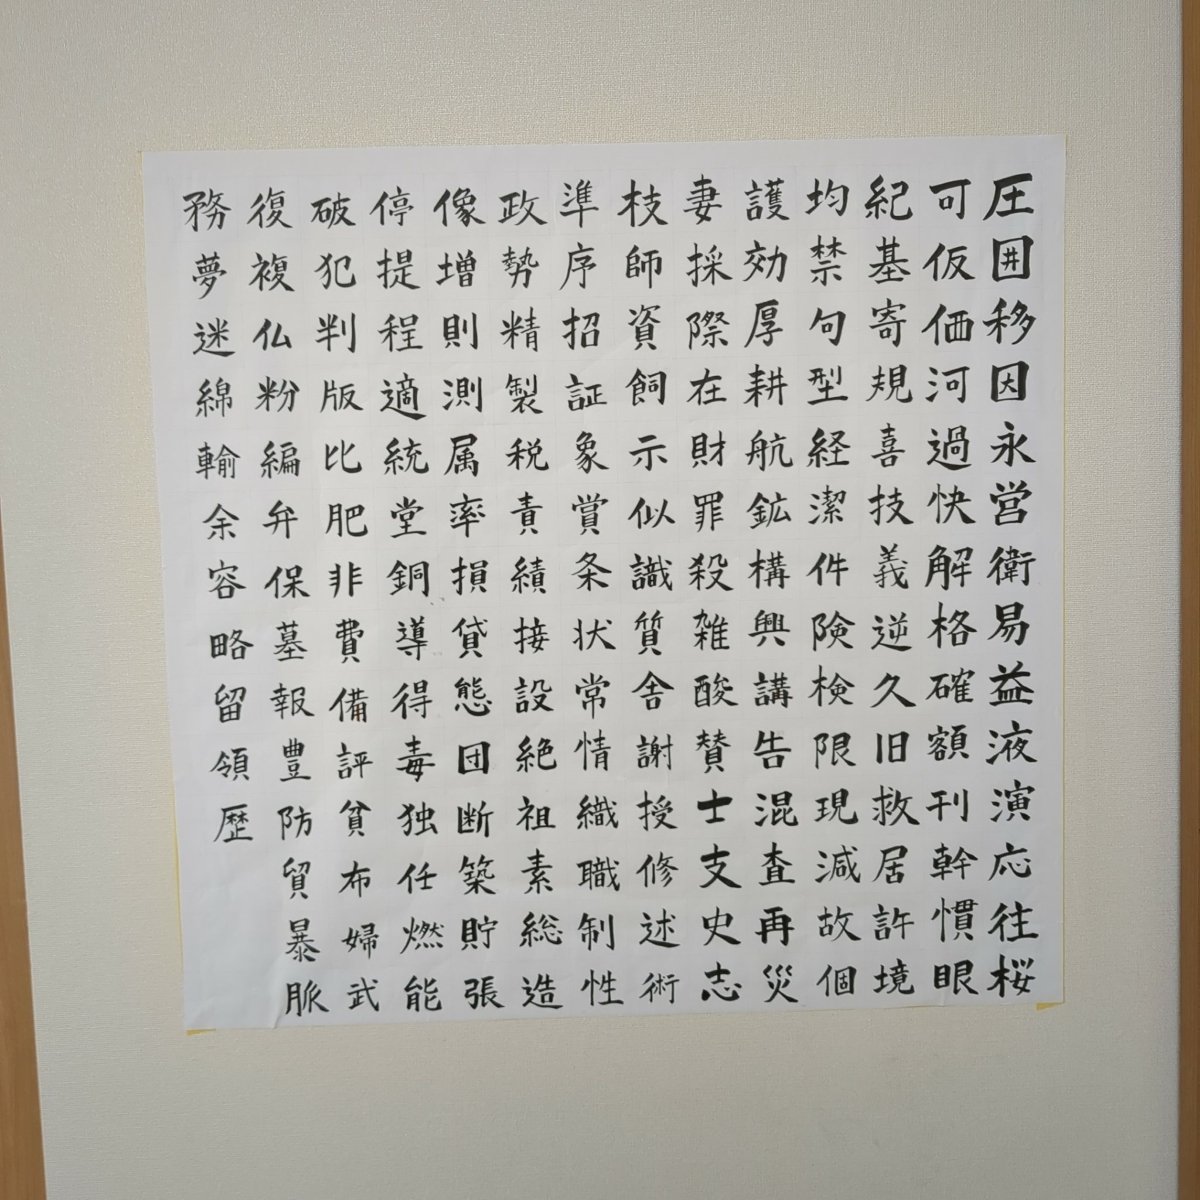 圧囲移因永営衛易益液演応往桜
可仮価河過快解格確額刊幹慣眼
紀基寄規喜技義逆久旧救居許境
均禁句型経潔件険検限現減故個
護効厚耕航鉱構興講告混査再災
妻採際在財罪殺雑酸賛士支史志
枝師資飼示似識質舎謝授修述術
準序招証象賞条状常情織職制性
政勢精製税責績接設絶祖素総造
像増則測属率損貸態団断築貯張
停提程適統堂銅導得毒独任燃能
破犯判版比肥非費備評貧布婦武
復複仏粉編弁保墓報豊防貿暴脈
務夢迷綿輸余容略留領歴